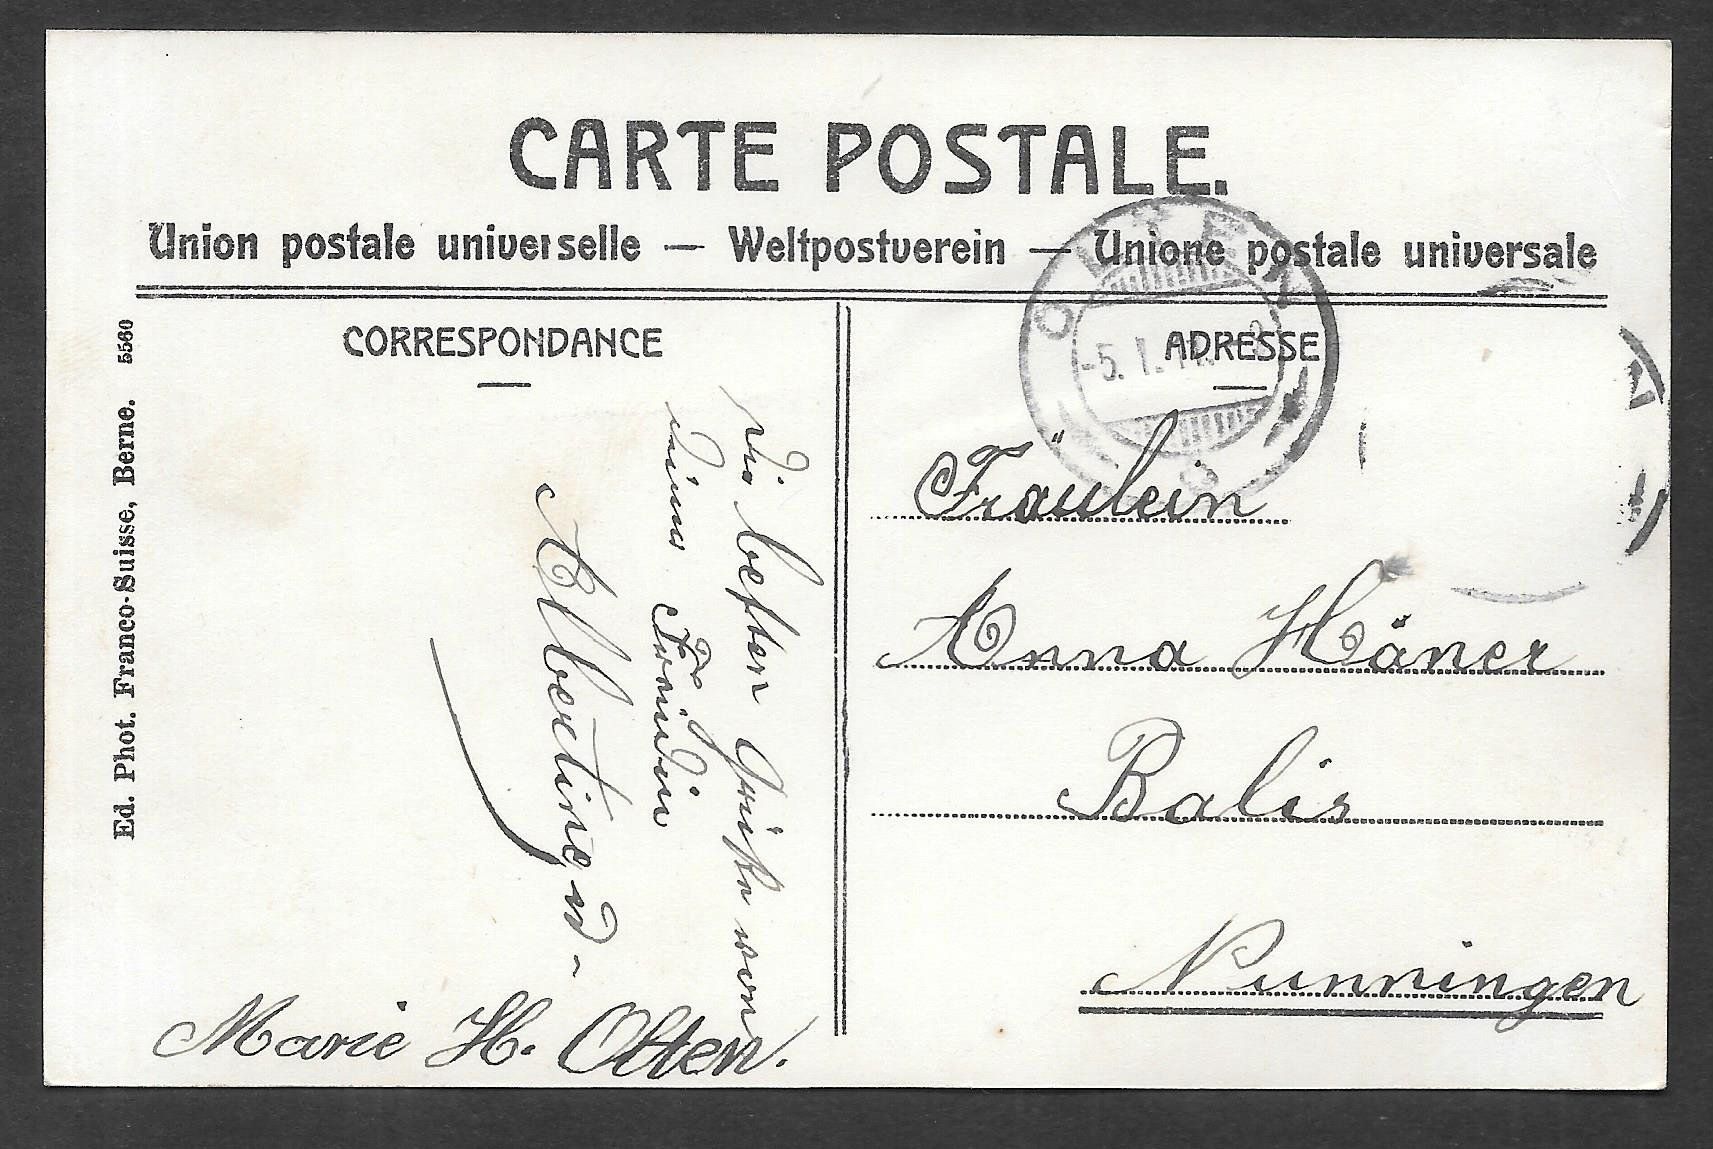 CARTE POSTALE.
Union postale universelle — Weltpostverein — Unione postale universale
CORRESPONDANCE
ADRESSE
Ed. Phot. Franco-Suisse, Berne. 5560
OLTEN
-5. I.
Die besten Grüße von
deiner Freundin
Albertine
Marie H. Olten.
Fräulein
Anna Häner
Balis
Nunningen